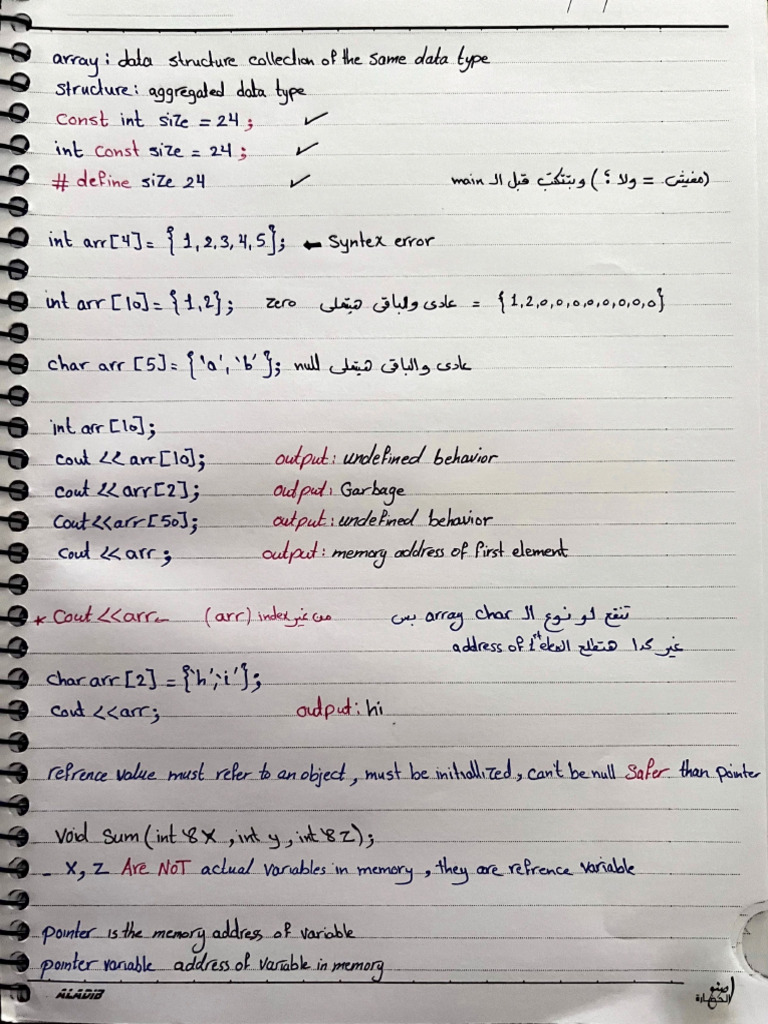 array: data structure collection of the same data type
structure: aggregated data type
Const int size = 24; ✓
int Const size = 24; ✓
# define size 24 ✓ (مفيش = ولا ;) وبتتكتب قبل الـ main
int arr[4] = { 1,2,3,4,5}; ← Syntex error
int arr [10] = {1,2}; zero عادى والباقى هيتملى = {1,2,0,0,0,0,0,0,0,0}
char arr [5] = {'a','b'}; null عادى والباقى هيتملى
int arr [10];
cout << arr[10]; output: undefined behavior
cout << arr[2]; output: Garbage
Cout<<arr[50]; output: undefined behavior
cout <<arr; output: memory address of first element
* Cout <<arr من غير index (arr) تنفع لو نوع الـ array char بس
غير كدا هتطلع الـ address of 1st element
char arr [2] = {'h','i'};
cout <<arr; output: hi
refrence value must refer to an object, must be initiallized, can't be null Safer than pointer
Void Sum (int &X, int y, int &Z);
- X, Z Are NOT actual variables in memory, they are refrence variable
pointer is the memory address of variable
pointer variable address of variable in memory
ALADIB
صنع الحضارة